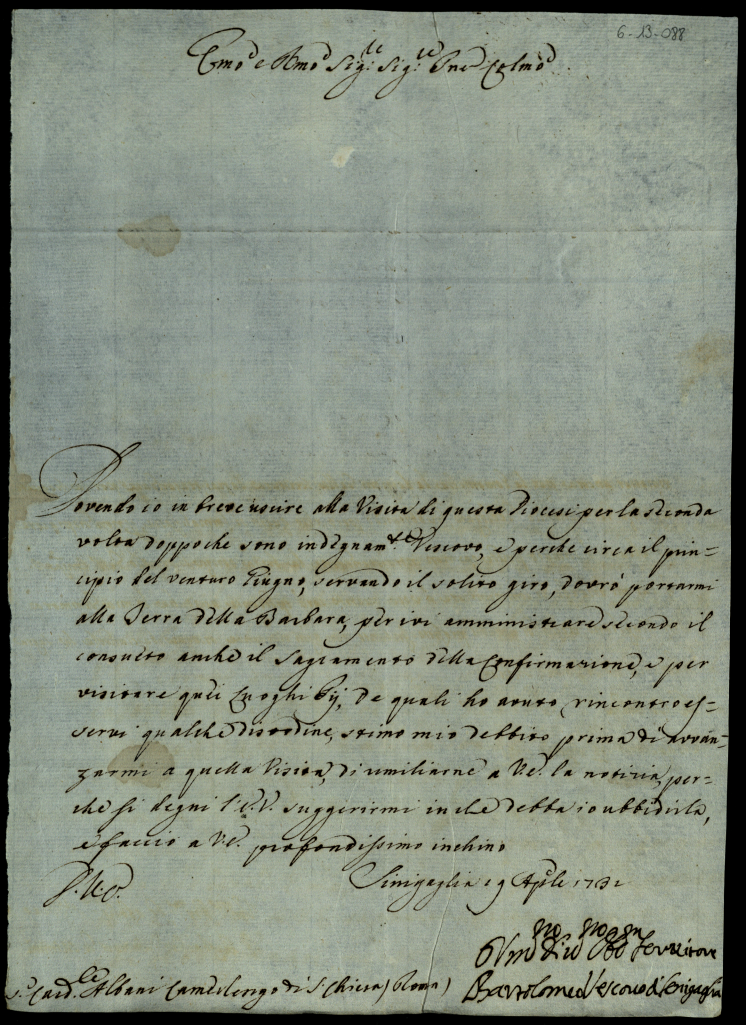 6-13-088
Emo e Rmo Sig.re Sig.re Pne Colmo
Dovendo io in breve uscire alla Visita di questa Diocesi per la seconda
volta doppoche sono indegnam.te Vescovo, e perche circa il prin-
cipio del venturo Giugno, servando il solito giro, dovrò portarmi
alla Terra della Barbara, per ivi amministrare secondo il
consueto anche il Sagramento della Confirmazione, e per
visitare quei Luoghi Pij, de quali ho avuto rincontro es-
servi qualche disordine, stimo mio debbito prima di avvan-
zarmi a quella Visita, di umiliarne a V.E. la notizia, per-
che si degni l'E.V. suggerirmi in che debba io ubbidirla,
e faccio a V.E. profondissimo inchino
Sinigaglia 19 Aprle 1732
Vmo Dmo Obbmo Servitore
S.r Card.le Albani Camerlengo di S. Chiesa, Roma)
Bartolomeo Vescovo di Senigaglia